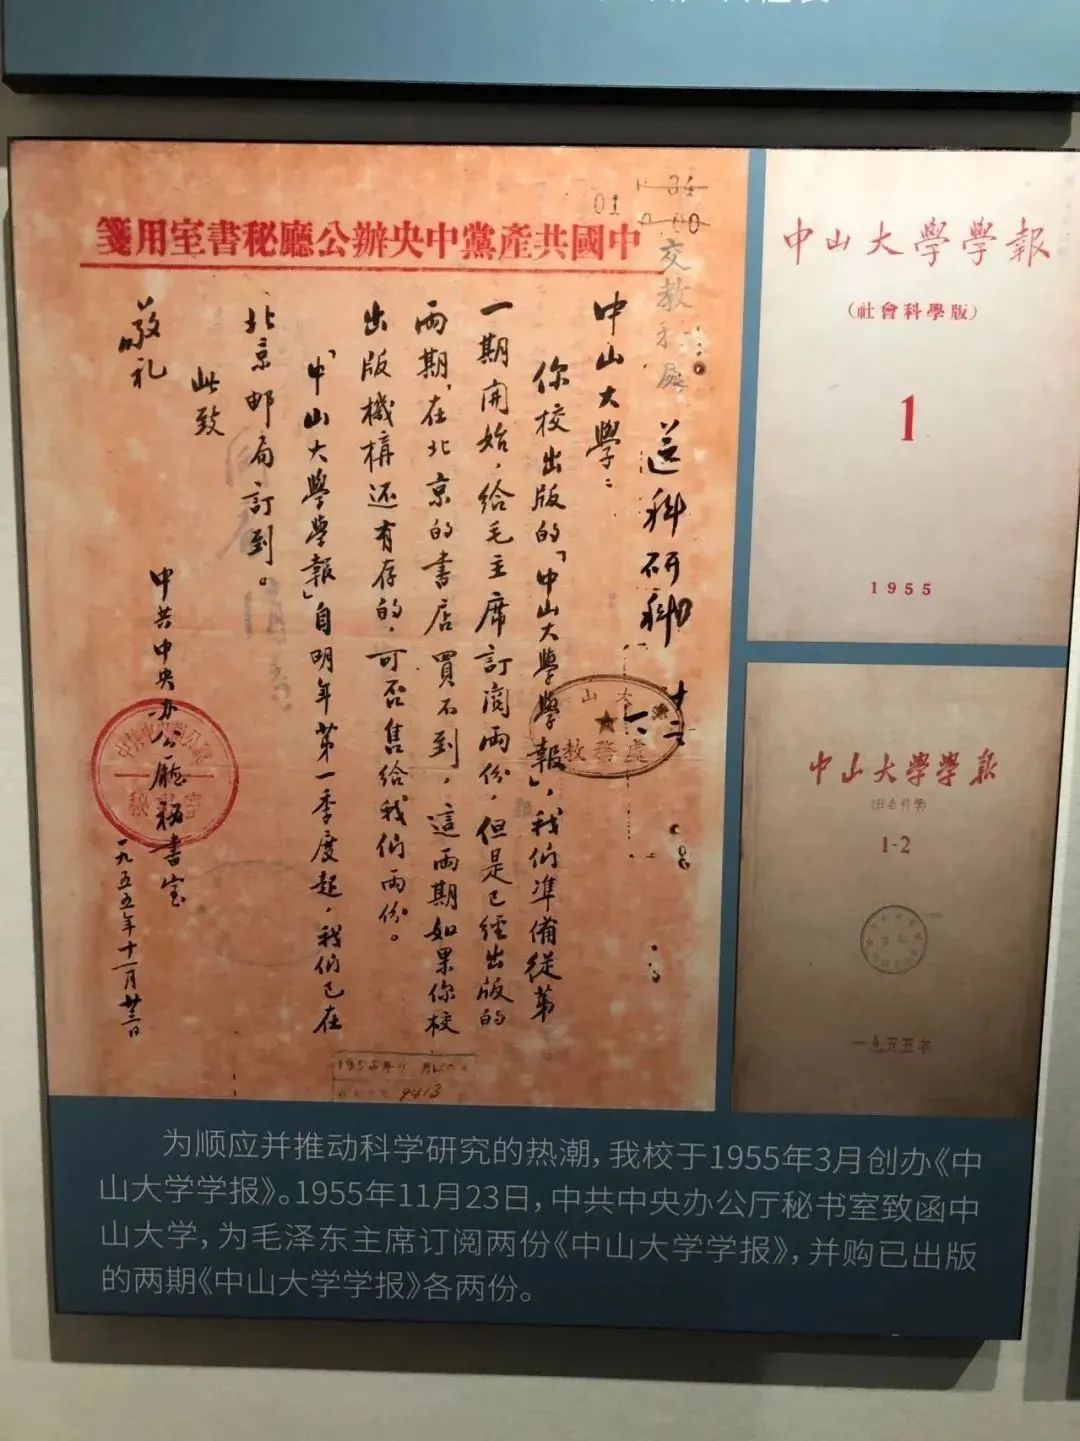 中國共產黨中央辦公廳秘書室用箋
01
交教科處
送科研科
中山大學：
你校出版的「中山大學學報」，我们準備從第
一期開始，给毛主席訂閱两份，但是已經出版的
两期，在北京的書店買不到，這两期如果你校
出版機構还有存的，可否售给我们两份。
「中山大學學報」自明年第一季度起，我们已在
北京邮局訂到。
此致
敬礼
中共中央办公廳秘書室
一九五五年十一月廿三日
山大
教務處
秘書室
9413
中山大學學報
（社會科學版）
1
1955
中山大學學報
1-2
一九五五年
为顺应并推动科学研究的热潮，我校于1955年3月创办《中
山大学学报》。1955年11月23日，中共中央办公厅秘书室致函中
山大学，为毛泽东主席订阅两份《中山大学学报》，并购已出版
的两期《中山大学学报》各两份。